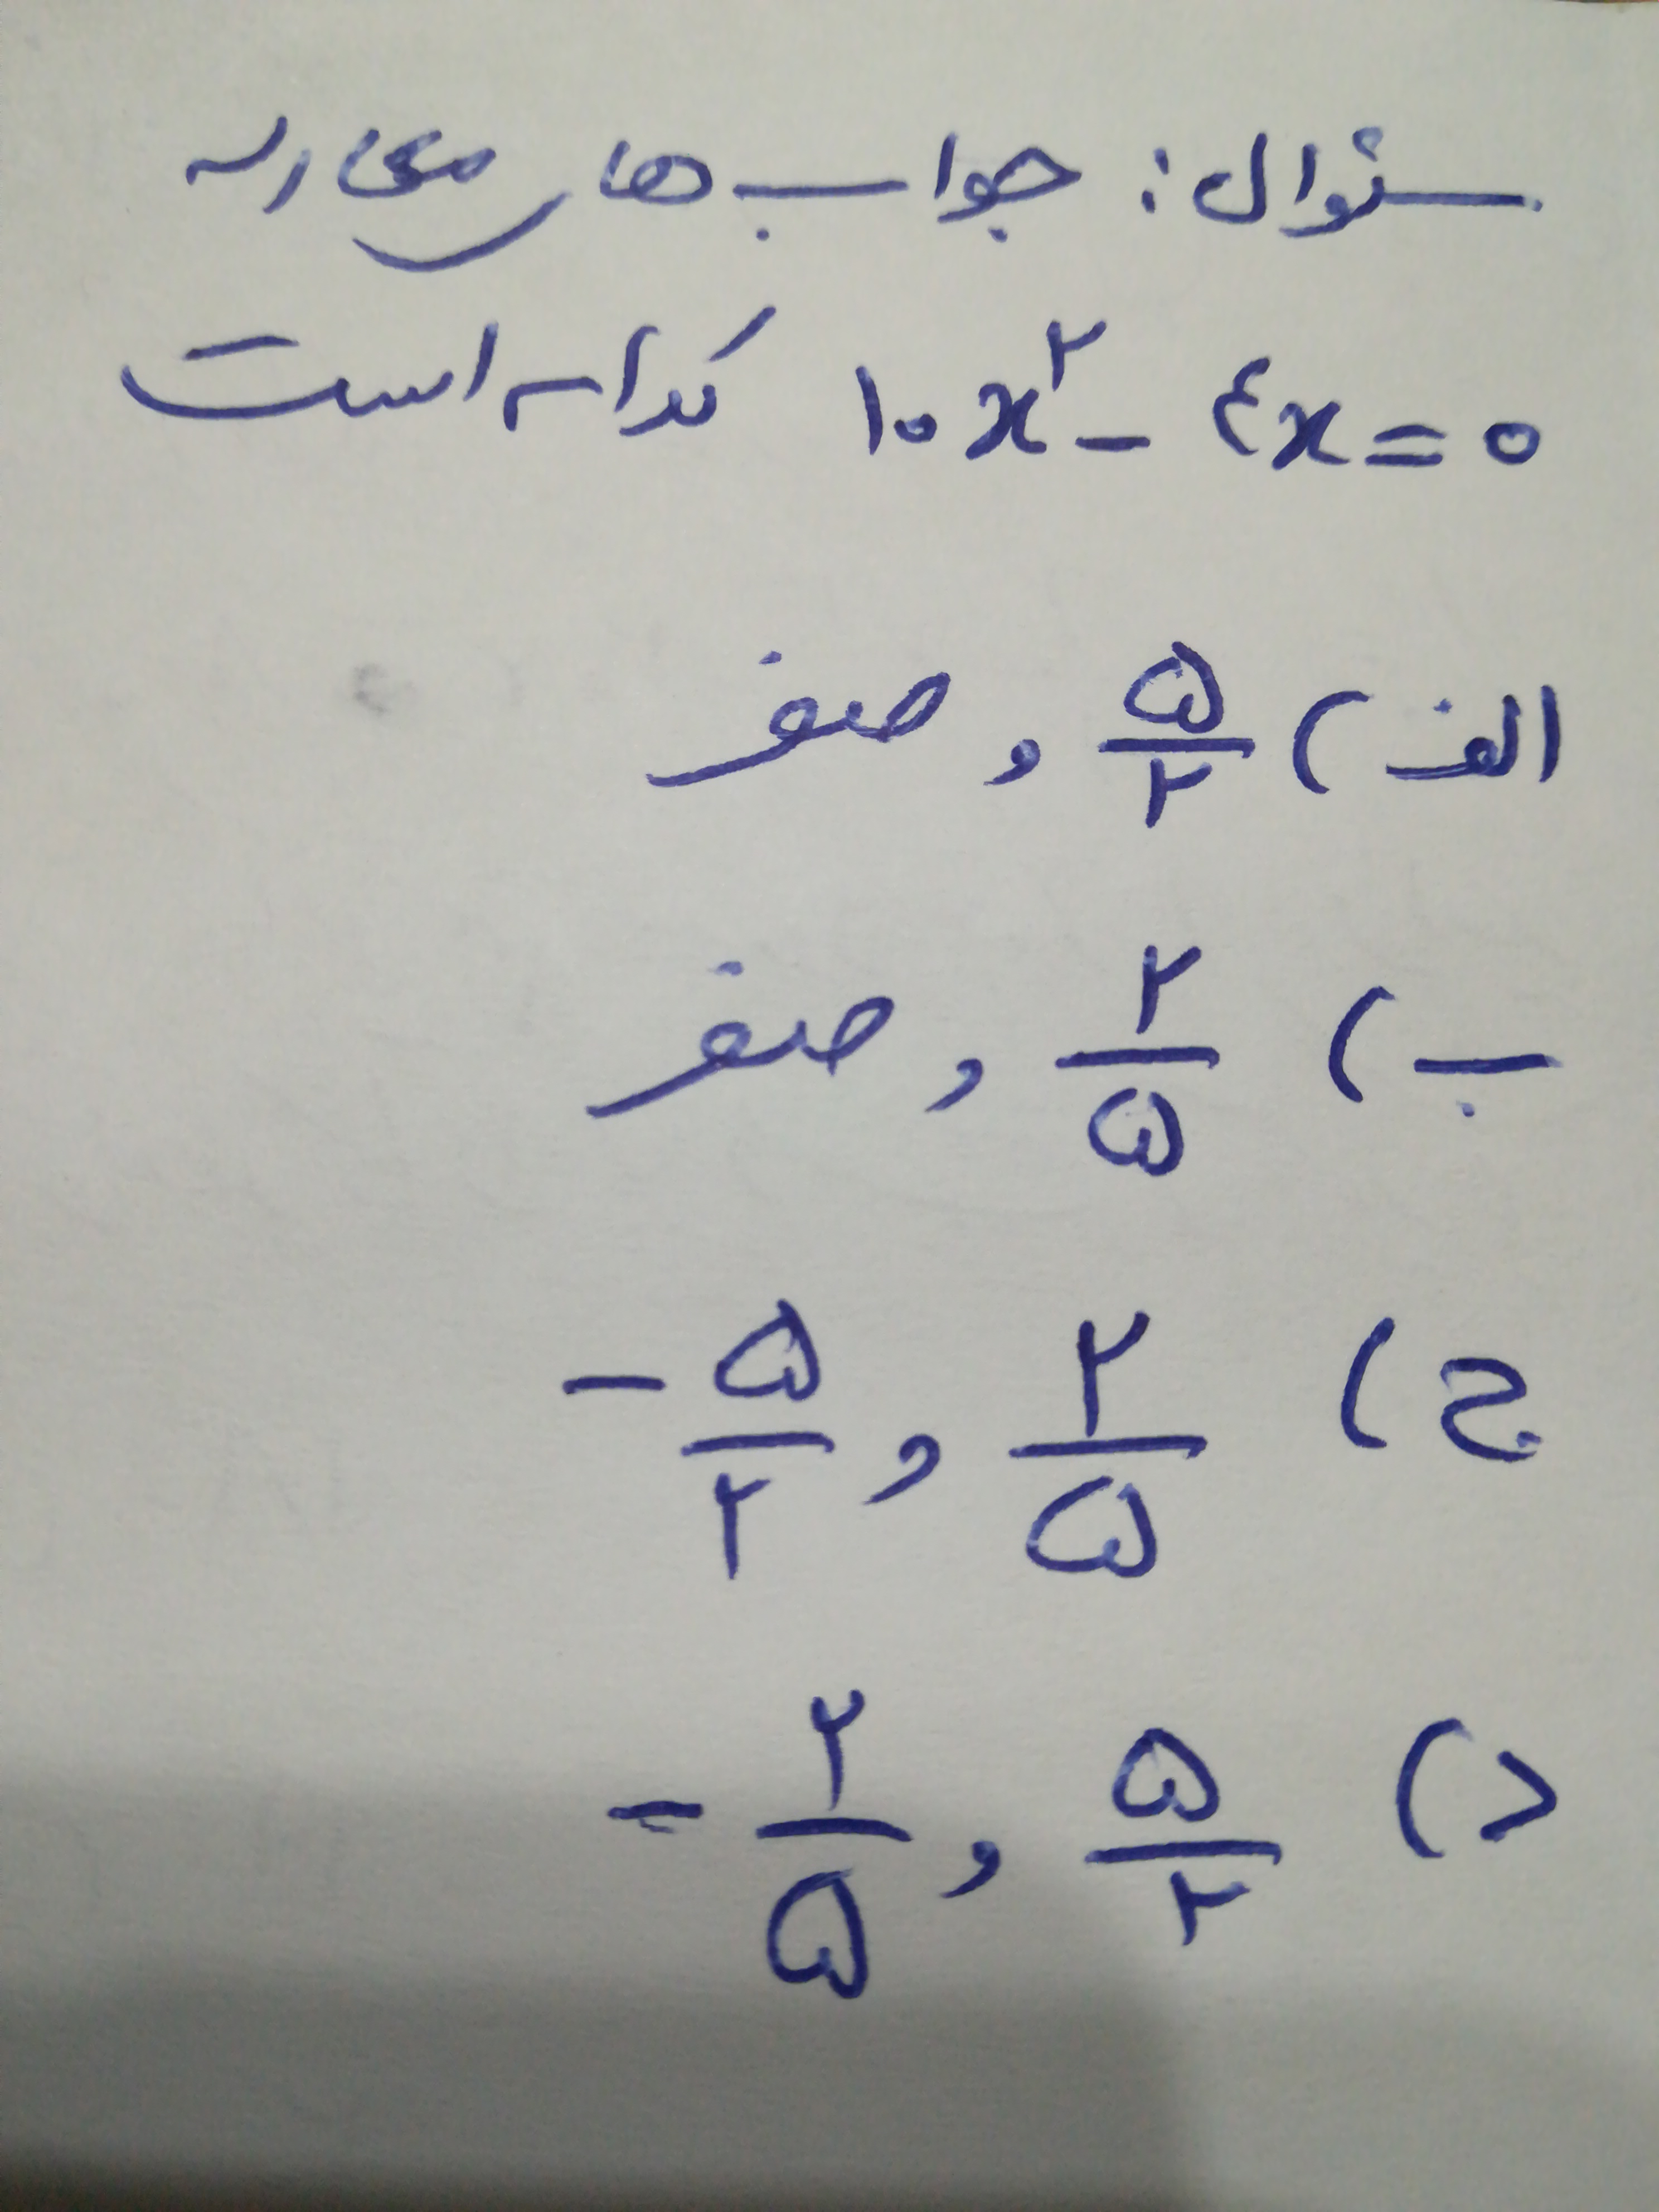 سئوال: جواب های معادله
۱۰x^۲ - ۴x = ۰ کدام است
الف) ۵/۲ , صفر
ب) ۲/۵ , صفر
ج) ۲/۵ , -۵/۲
د) ۵/۲ , -۲/۵